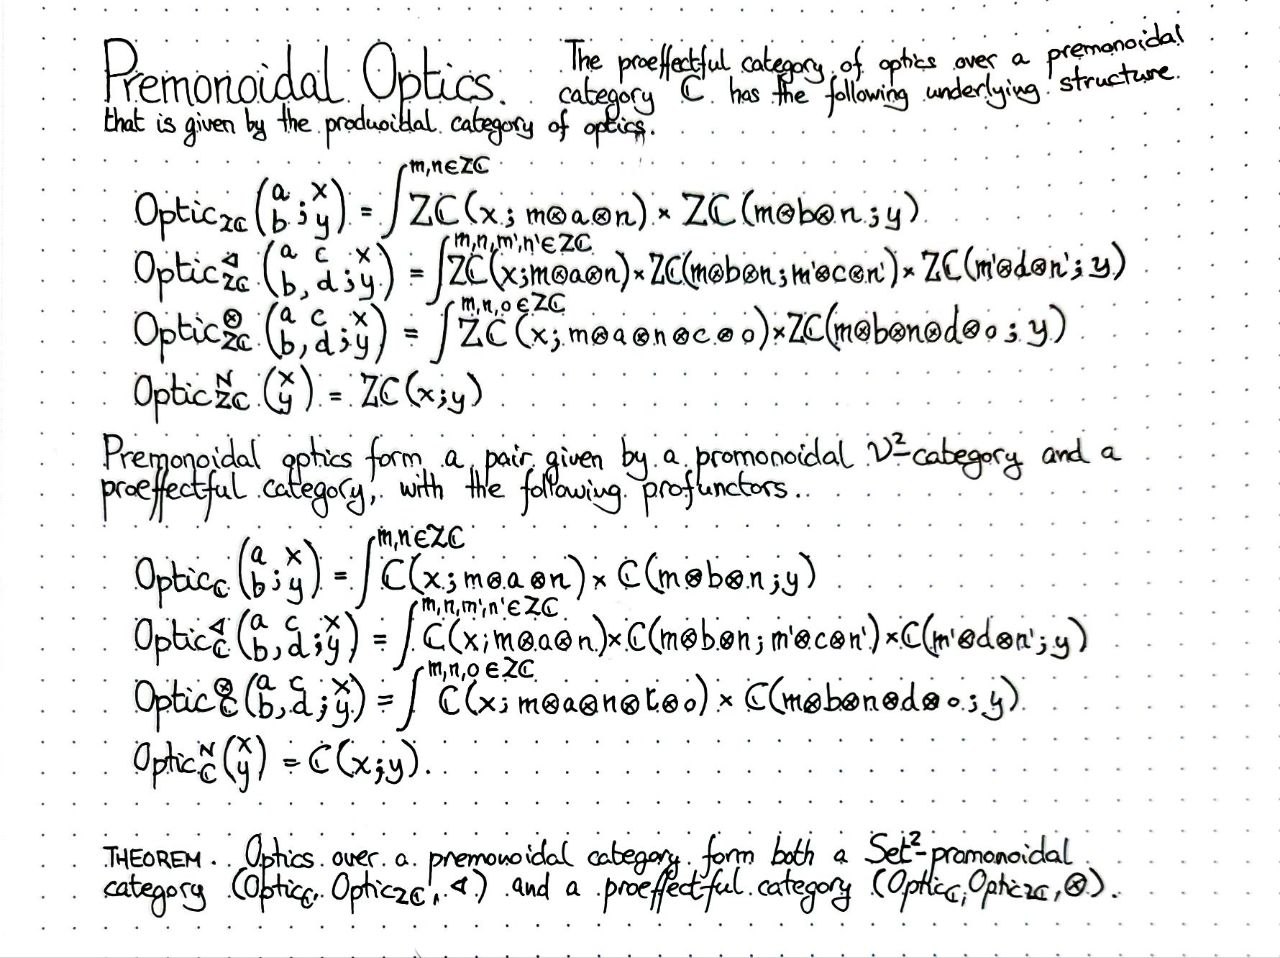 Premonoidal Optics. The proeffectful category of optics over a premonoidal
category ℂ has the following underlying structure
that is given by the produoidal category of optics.
Optic_Zℂ (a b ; x y) = ∫^{m,n∈Zℂ} Zℂ(x; m⊗a⊗n) × Zℂ(m⊗b⊗n; y).
Optic^◁_Zℂ (a b, c d; x y) = ∫^{m,n,m',n'∈Zℂ} Zℂ(x;m⊗a⊗n)×Zℂ(m⊗b⊗n;m'⊗c⊗n')×Zℂ(m'⊗d⊗n'; y)
Optic^⊗_Zℂ (a b, c d; x y) = ∫^{m,n,o∈Zℂ} Zℂ(x; m⊗a⊗n⊗c⊗o)×Zℂ(m⊗b⊗n⊗d⊗o; y)
Optic^N_Zℂ (x y) = Zℂ(x;y)
Premonoidal optics form a pair given by a promonoidal V²-category and a
proeffectful category, with the following profunctors.
Optic_ℂ (a b ; x y) = ∫^{m,n∈Zℂ} ℂ(x; m⊗a⊗n) × ℂ(m⊗b⊗n; y)
Optic^◁_ℂ (a b, c d; x y) = ∫^{m,n,m',n'∈Zℂ} ℂ(x;m⊗a⊗n)×ℂ(m⊗b⊗n; m'⊗c⊗n')×ℂ(m'⊗d⊗n'; y)
Optic^⊗_ℂ (a b, c d; x y) = ∫^{m,n,o∈Zℂ} ℂ(x; m⊗a⊗n⊗c⊗o) × ℂ(m⊗b⊗n⊗d⊗o; y)
Optic^N_ℂ (x y) = ℂ(x;y).
THEOREM. Optics over a premonoidal category form both a Set²-promonoidal
category (Optic_ℂ, Optic_Zℂ, ◁) and a proeffectful category (Optic_ℂ, Optic_Zℂ, ⊗).